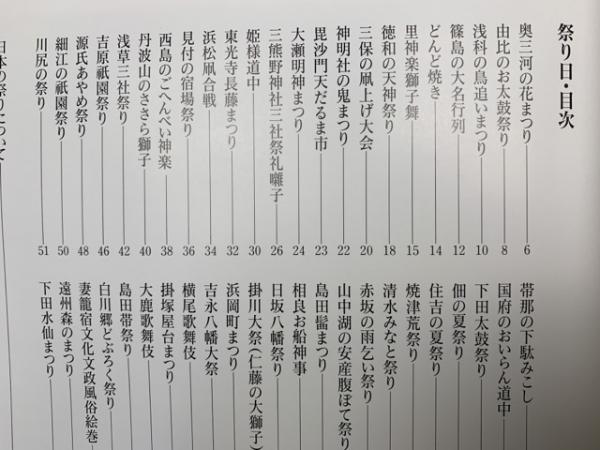 祭り日・目次
奥三河の花まつり 6
由比のお太鼓祭り 8
浅科の鳥追いまつり 10
篠島の大名行列 12
どんど焼き 14
里神楽獅子舞 15
徳和の天神祭り 18
三保の凧上げ大会 20
神明社の鬼まつり 22
毘沙門天だるま市 23
大瀬明神まつり 24
三熊野神社三社祭礼囃子 26
姫様道中 30
東光寺長藤まつり 32
浜松凧合戦 34
見付の宿場祭り 36
西島のごへんべい神楽 38
丹波山のささら獅子 40
浅草三社祭り 42
吉原祇園祭り 46
源氏あやめ祭り 48
細江の祇園祭り 50
川尻の祭り 51
日本の祭りについて
帯那の下駄みこし
国府のおいらん道中
下田太鼓祭り
佃の夏祭り
住吉の夏祭り
焼津荒祭り
清水みなと祭り
赤坂の雨乞い祭り
山中湖の安産腹ぼて祭り
島田髷まつり
相良お船神事
日坂八幡祭り
掛川大祭(仁藤の大獅子)
浜岡町まつり
吉永八幡大祭
横尾歌舞伎
掛塚屋台まつり
大鹿歌舞伎
島田帯祭り
白川郷どぶろく祭り
妻籠宿文化文政風俗絵巻
遠州森のまつり
下田水仙まつり